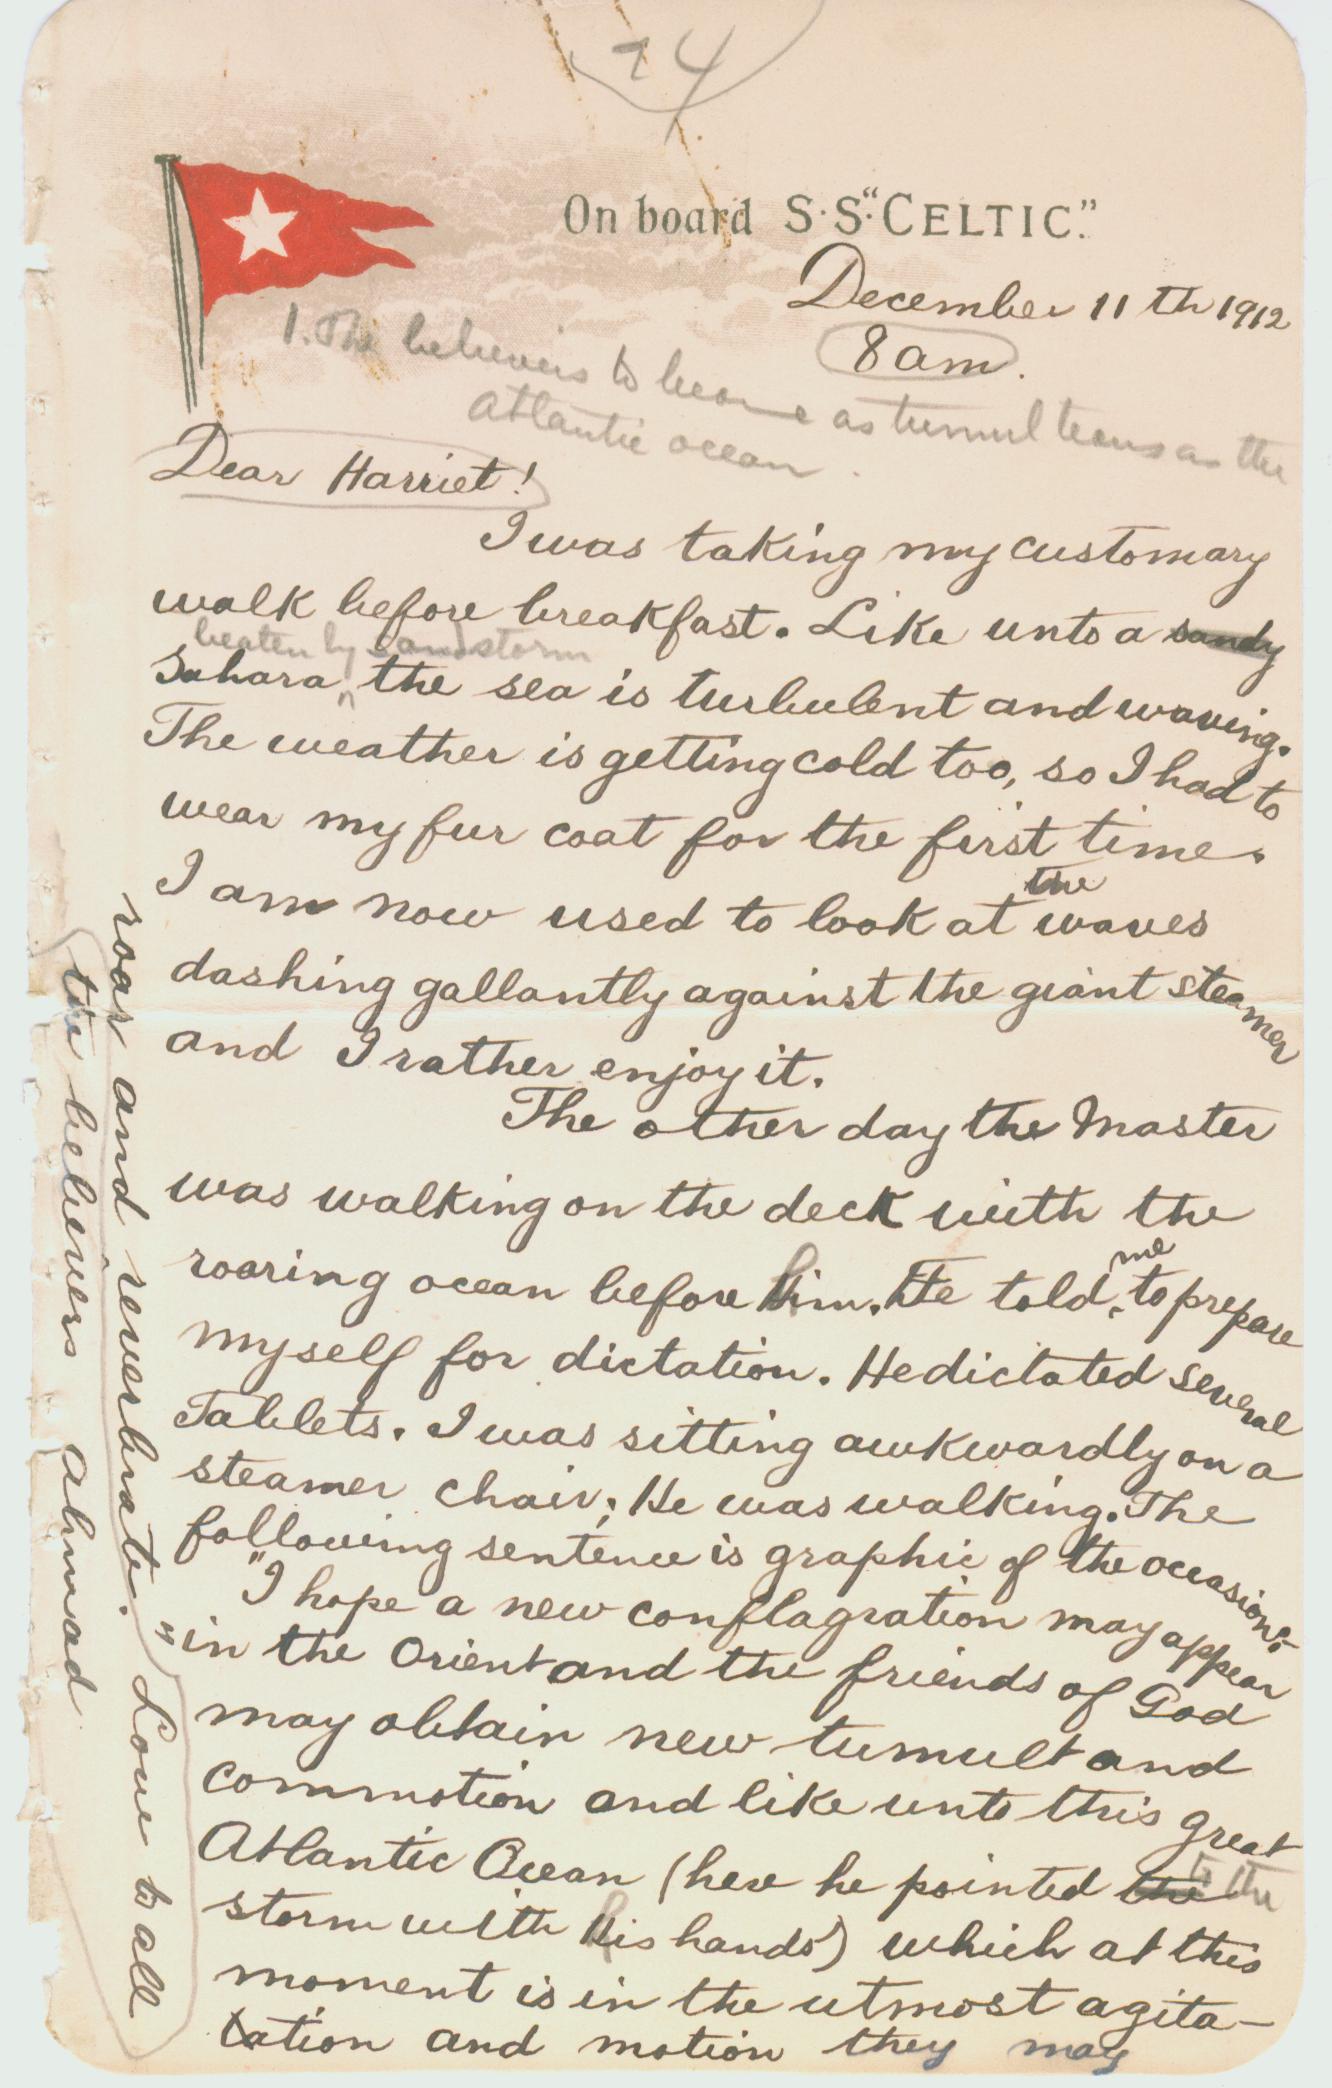 74
On board S.S. "CELTIC."
December 11th 1912
8 am.
1. The believers to become as tumultuous as the
Atlantic ocean.
Dear Harriet!
I was taking my customary
walk before breakfast. Like unto a sandy
beaten by sandstorm
Sahara, the sea is turbulent and waving.
The weather is getting cold too, so I had to
wear my fur coat for the first time.
I am now used to look at the waves
dashing gallantly against the giant steamer
and I rather enjoy it.
The other day the Master
was walking on the deck with the
roaring ocean before him. He told me to prepare
myself for dictation. He dictated several
Tablets. I was sitting awkwardly on a
steamer chair; He was walking. The
following sentence is graphic of the occasion:-
"I hope a new conflagration may appear
in the Orient and the friends of God
may obtain new tumult and
commotion and like unto this great
Atlantic Ocean (here he pointed the to the
storm with his hands) which at this
moment is in the utmost agita-
tation and motion they may
roar and reverbrate." Love to all
the believers Ahmad